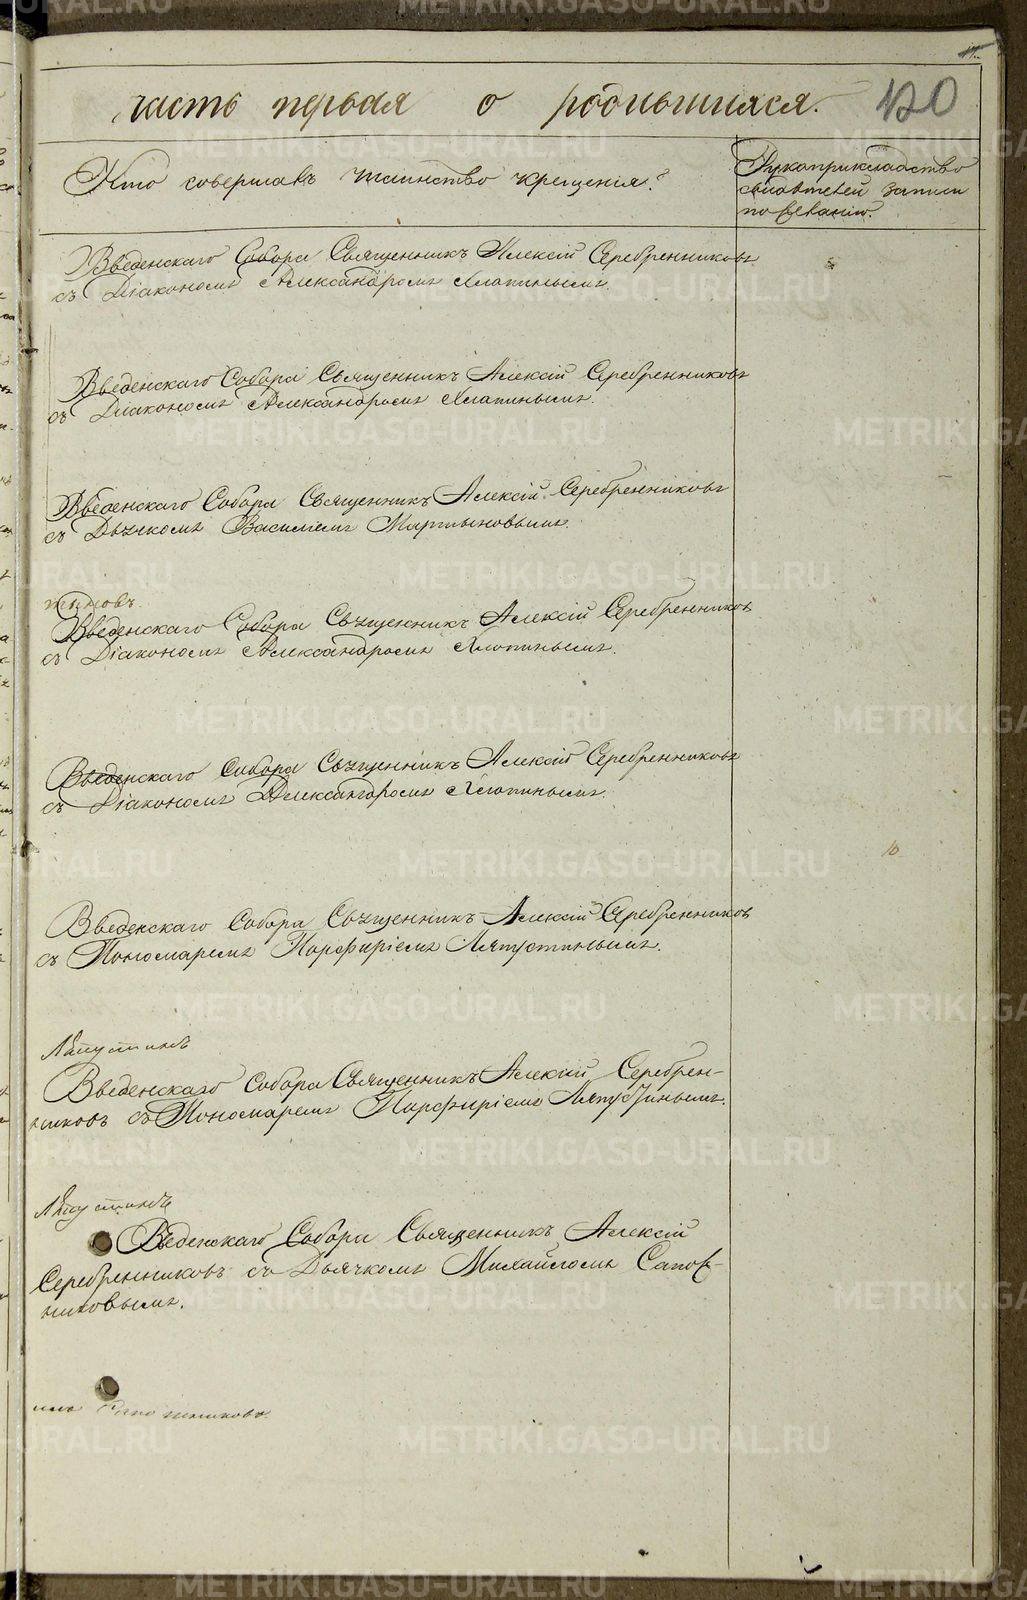 часть первая о родившихся.
120
Кто совершалъ таинство крещенія?
Рукоприкладство
свидѣтелей записи
по желанію.
Введенскаго Собора Священникъ Алексій Серебренниковъ
съ Діакономъ Александромъ Хлопинымъ.
Введенскаго Собора Священникъ Алексій Серебренниковъ
съ Діакономъ Александромъ Хлопинымъ.
Введенскаго Собора Священникъ Алексій Серебренниковъ
съ Дьячкомъ Василіемъ Мартыновымъ.
Введенскаго Собора Священникъ Алексій Серебренниковъ
съ Діакономъ Александромъ Хлопинымъ.
Введенскаго Собора Священникъ Алексій Серебренниковъ
съ Діакономъ Александромъ Хлопинымъ.
10
Введенскаго Собора Священникъ Алексій Серебренниковъ
съ Пономаремъ Порфиріемъ Ляпустинымъ.
Ляпустинъ
Введенскаго Собора Священникъ Алексій Серебрен-
никовъ съ Пономаремъ Порфиріемъ Ляпустинымъ.
Ляпустинъ
Введенскаго Собора Священникъ Алексій
Серебренниковъ съ Дьячкомъ Михайломъ Сапож-
никовымъ.
METRIKI.GASO-URAL.RU